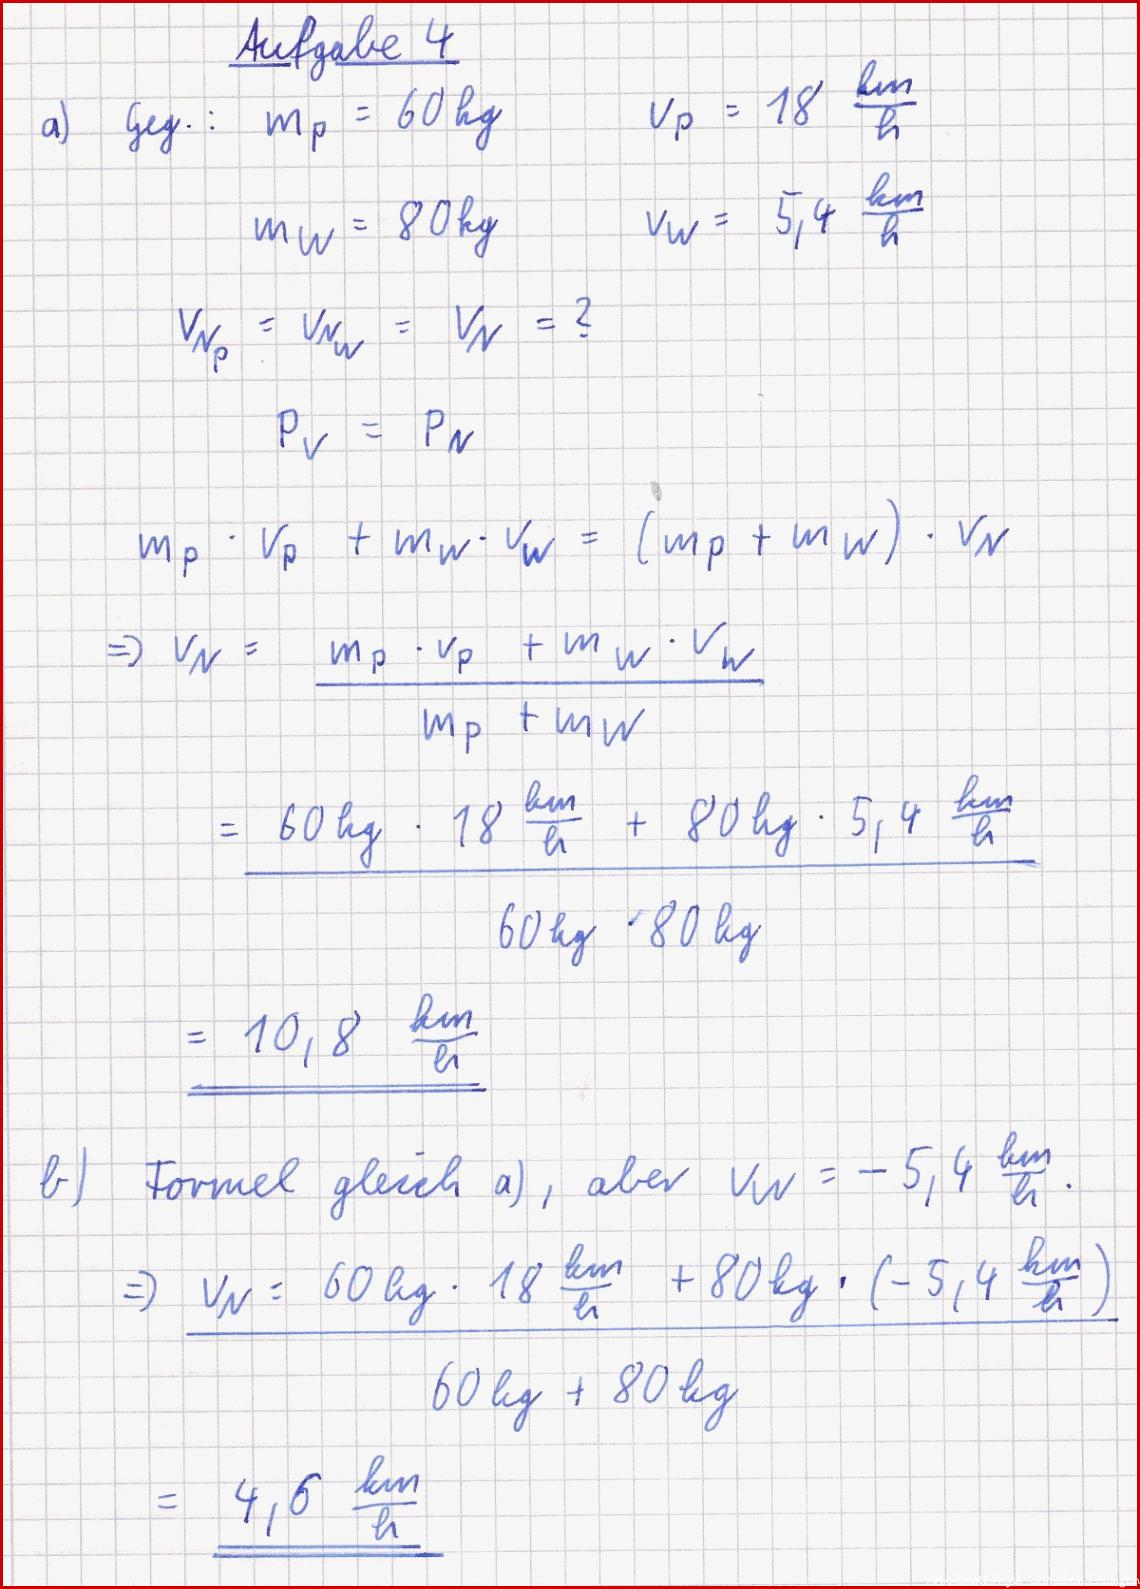 Aufgabe 4
a) Geg.: m_P = 60 kg v_P = 18 km/h
m_W = 80 kg v_W = 5,4 km/h
v_N_P = v_N_W = v_N = ?
P_V = P_N
m_P · v_P + m_W · v_W = (m_P + m_W) · v_N
=> v_N = m_P · v_P + m_W · v_W
m_P + m_W
= 60 kg · 18 km/h + 80 kg · 5,4 km/h
60 kg · 80 kg
= 10,8 km/h
b) Formel gleich a), aber v_W = - 5,4 km/h.
=> v_N = 60 kg · 18 km/h + 80 kg · (- 5,4 km/h)
60 kg + 80 kg
= 4,6 km/h